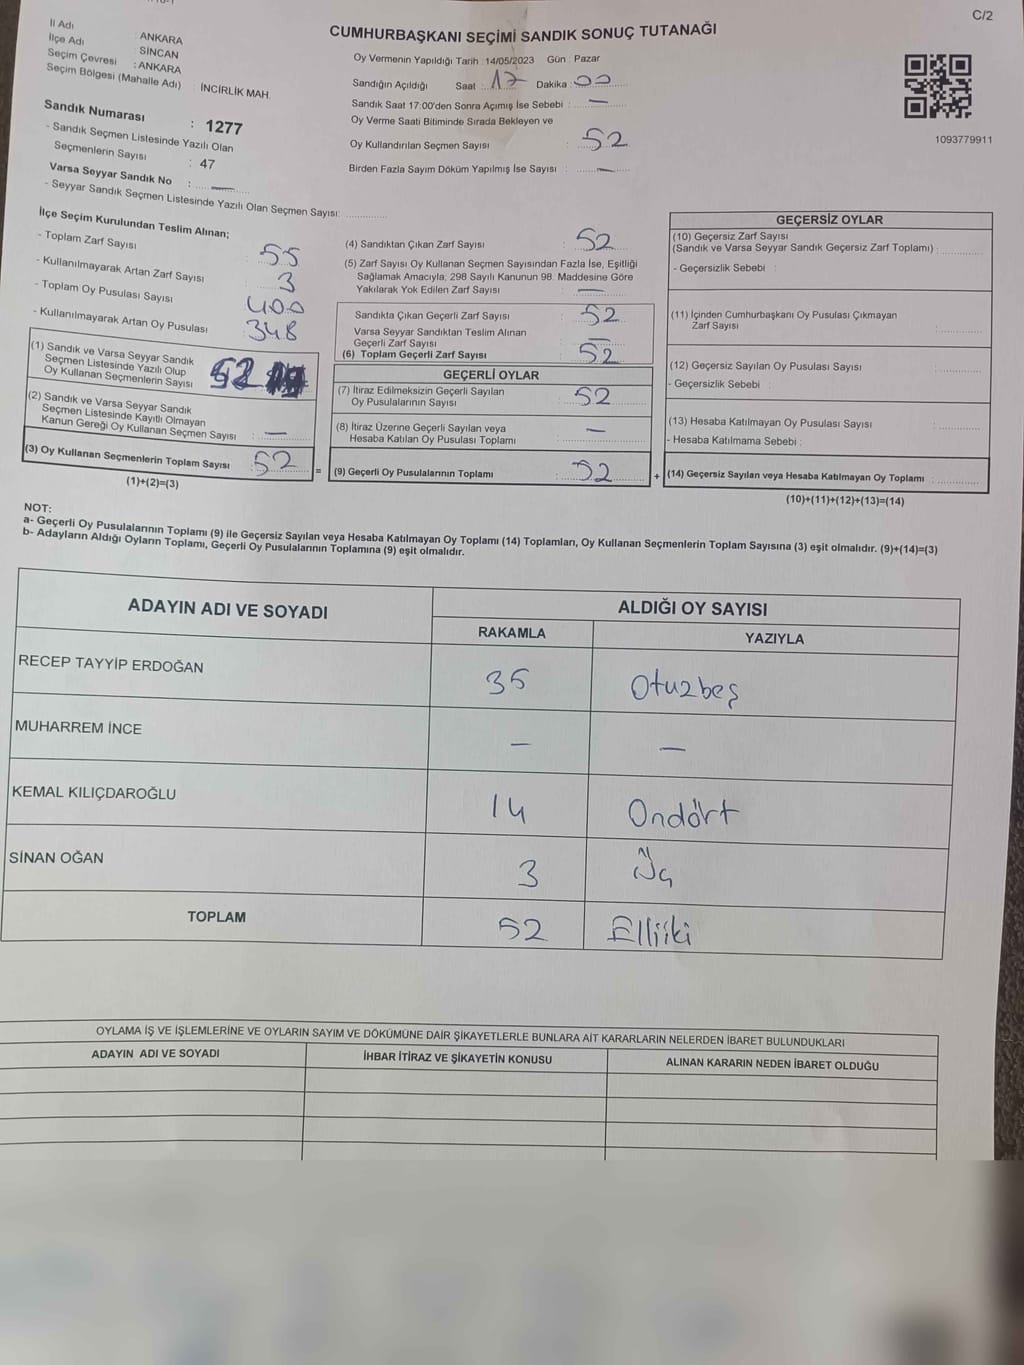 C/2
CUMHURBAŞKANI SEÇİMİ SANDIK SONUÇ TUTANAĞI
İl Adı : ANKARA
İlçe Adı : SİNCAN
Seçim Çevresi : ANKARA
Seçim Bölgesi (Mahalle Adı) : İNCİRLİK MAH.
Sandık Numarası : 1277
- Sandık Seçmen Listesinde Yazılı Olan
Seçmenlerin Sayısı : 47
Varsa Seyyar Sandık No : —
- Seyyar Sandık Seçmen Listesinde Yazılı Olan Seçmen Sayısı:
Oy Vermenin Yapıldığı Tarih : 14/05/2023 Gün : Pazar
Sandığın Açıldığı Saat : 17 Dakika : 00
Sandık Saat 17:00'den Sonra Açımış İse Sebebi : —
Oy Verme Saati Bitiminde Sırada Bekleyen ve
Oy Kullandırılan Seçmen Sayısı : 52
Birden Fazla Sayım Döküm Yapılmış İse Sayısı : —
1093779911
İlçe Seçim Kurulundan Teslim Alınan;
- Toplam Zarf Sayısı : 55
- Kullanılmayarak Artan Zarf Sayısı : 3
- Toplam Oy Pusulası Sayısı : 400
- Kullanılmayarak Artan Oy Pusulası : 348
(1) Sandık ve Varsa Seyyar Sandık
Seçmen Listesinde Yazılı Olup
Oy Kullanan Seçmenlerin Sayısı 52
(2) Sandık ve Varsa Seyyar Sandık
Seçmen Listesinde Kayıtlı Olmayan
Kanun Gereği Oy Kullanan Seçmen Sayısı : —
(3) Oy Kullanan Seçmenlerin Toplam Sayısı : 52
(1)+(2)=(3)
=
(4) Sandıktan Çıkan Zarf Sayısı : 52
(5) Zarf Sayısı Oy Kullanan Seçmen Sayısından Fazla İse, Eşitliği
Sağlamak Amacıyla; 298 Sayılı Kanunun 98. Maddesine Göre
Yakılarak Yok Edilen Zarf Sayısı : —
Sandıkta Çıkan Geçerli Zarf Sayısı : 52
Varsa Seyyar Sandıktan Teslim Alınan
Geçerli Zarf Sayısı : —
(6) Toplam Geçerli Zarf Sayısı : 52
GEÇERLİ OYLAR
(7) İtiraz Edilmeksizin Geçerli Sayılan
Oy Pusulalarının Sayısı : 52
(8) İtiraz Üzerine Geçerli Sayılan veya
Hesaba Katılan Oy Pusulası Toplamı : —
(9) Geçerli Oy Pusulalarının Toplamı : 52
+
GEÇERSİZ OYLAR
(10) Geçersiz Zarf Sayısı
(Sandık ve Varsa Seyyar Sandık Geçersiz Zarf Toplamı) :
- Geçersizlik Sebebi :
(11) İçinden Cumhurbaşkanı Oy Pusulası Çıkmayan
Zarf Sayısı :
(12) Geçersiz Sayılan Oy Pusulası Sayısı :
- Geçersizlik Sebebi :
(13) Hesaba Katılmayan Oy Pusulası Sayısı :
- Hesaba Katılmama Sebebi :
(14) Geçersiz Sayılan veya Hesaba Katılmayan Oy Toplamı :
(10)+(11)+(12)+(13)=(14)
NOT:
a- Geçerli Oy Pusulalarının Toplamı (9) ile Geçersiz Sayılan veya Hesaba Katılmayan Oy Toplamı (14) Toplamları, Oy Kullanan Seçmenlerin Toplam Sayısına (3) eşit olmalıdır. (9)+(14)=(3)
b- Adayların Aldığı Oyların Toplamı, Geçerli Oy Pusulalarının Toplamına (9) eşit olmalıdır.
ADAYIN ADI VE SOYADI ALDIĞI OY SAYISI
RAKAMLA YAZIYLA
RECEP TAYYİP ERDOĞAN 35 Otuzbeş
MUHARREM İNCE — —
KEMAL KILIÇDAROĞLU 14 Ondört
SİNAN OĞAN 3 Üç
TOPLAM 52 Elliiki
OYLAMA İŞ VE İŞLEMLERİNE VE OYLARIN SAYIM VE DÖKÜMÜNE DAİR ŞİKAYETLERLE BUNLARA AİT KARARLARIN NELERDEN İBARET BULUNDUKLARI
ADAYIN ADI VE SOYADI İHBAR İTİRAZ VE ŞİKAYETİN KONUSU ALINAN KARARIN NEDEN İBARET OLDUĞU